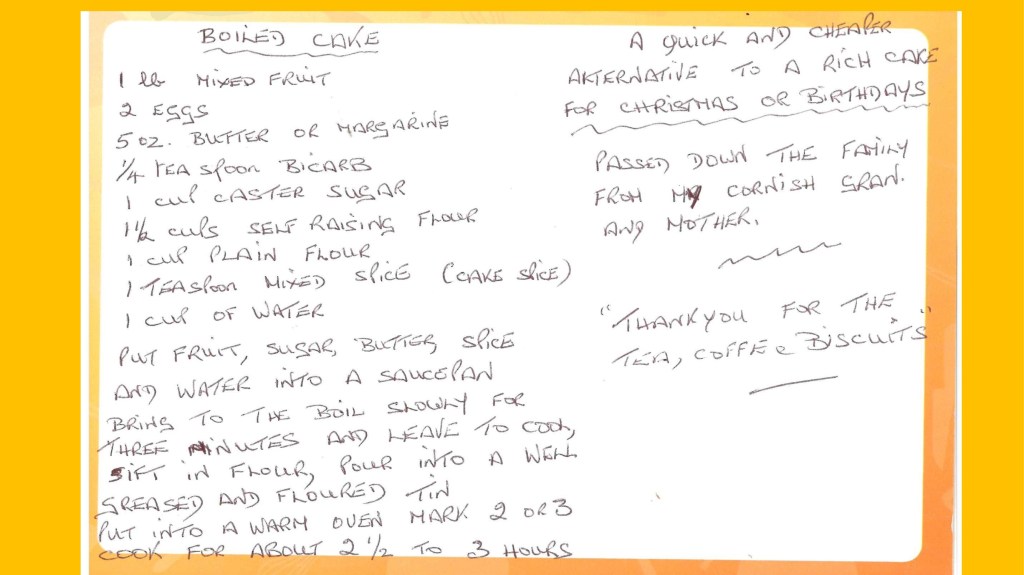 BOILED CAKE
1 lb MIXED FRUIT
2 EGGS
5 OZ. BUTTER OR MARGARINE
1/4 TEASPOON BICARB
1 CUP CASTER SUGAR
1 1/2 CUPS SELF RAISING FLOUR
1 CUP PLAIN FLOUR
1 TEASPOON MIXED SPICE (CAKE SPICE)
1 CUP OF WATER
PUT FRUIT, SUGAR, BUTTER, SPICE
AND WATER INTO A SAUCEPAN
BRING TO THE BOIL SLOWLY FOR
THREE MINUTES AND LEAVE TO COOL,
SIFT IN FLOUR, POUR INTO A WELL
GREASED AND FLOURED TIN
PUT INTO A WARM OVEN MARK 2 OR 3
COOK FOR ABOUT 2 1/2 TO 3 HOURS
A QUICK AND CHEAPER
AKTERNATIVE TO A RICH CAKE
FOR CHRISTMAS OR BIRTHDAYS
PASSED DOWN THE FAMILY
FROM MY CORNISH GRAN.
AND MOTHER.
"THANKYOU FOR THE
TEA, COFFEE & BISCUITS"